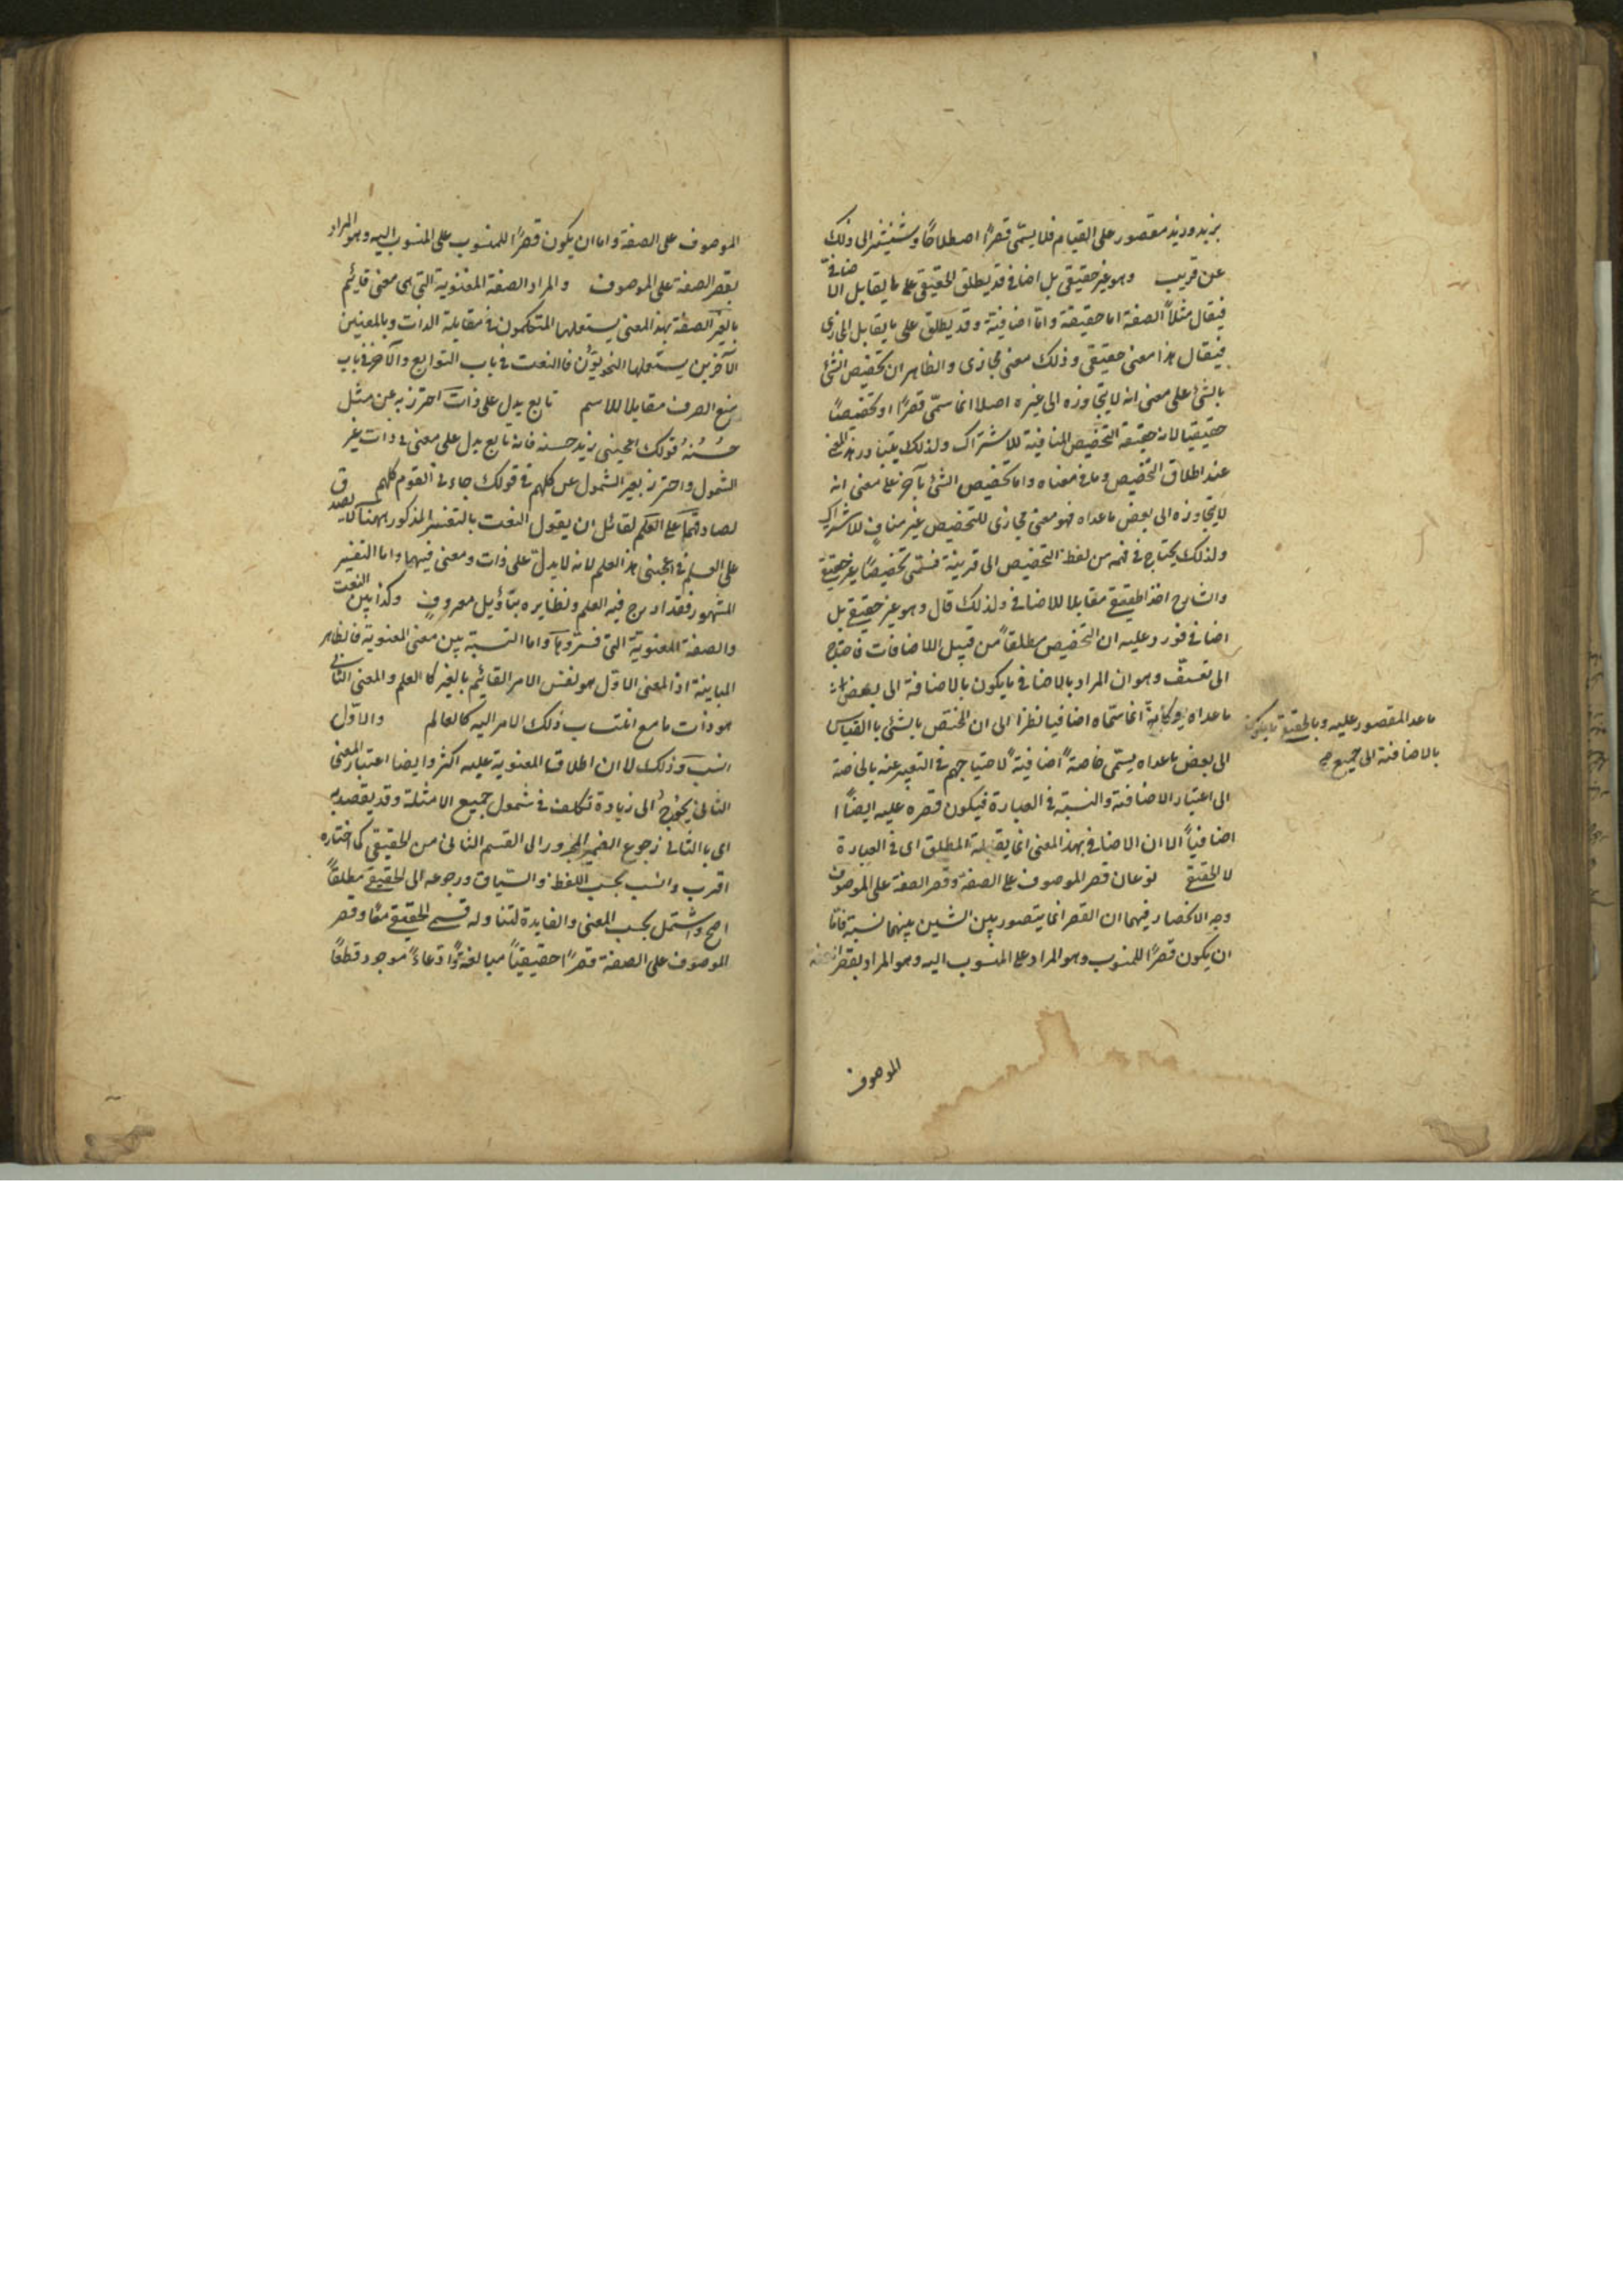 بزيد وزيد مقصور على القيام فلا يسمّى قصرًا اصطلاحًا وستشير الى ذلك
عن قريب وهو غير حقيقى بل اضافى قد يطلق الحقيقى على ما يقابل الاضافىّ
فيقال مثلاً الصفة اما حقيقة وامّا اضافيّة وقد يطلق على ما يقابل المجازى
فيقال هذا معنى حقيقى وذلك معنى مجازى والظاهر ان تخصيص الشئ
بالشئ على معنى انه لا يتجاوزه الى غيره اصلا انما سمّى قصرًا او تخصيصًا
حقيقيا لانه حقيقة التخصيص المنافية للاشتراك ولذلك يتبادر هذا المعنى
عند اطلاق التخصيص وما فى معناه واما تخصيص الشئ بآخر على معنى انه
لا يتجاوزه الى بعض ماعداه فهو معنى مجازى للتخصيص غير منافٍ للاشتراك
ولذلك يحتاج فى فهمه من لفظ التخصيص الى قرينة فسمّى تخصيصًا غير حقيقى
والشارح اخذ الحقيقى مقابلا للاضافى ولذلك قال وهو غير حقيقى بل
اضافى فورد عليه ان التخصيص مطلقاً من قبيل الاضافات فاحتاج
الى تعسّف وهو ان المراد بالاضافى ما يكون بالاضافة الى بعض
ماعداه وكأنّه انما سمّاه اضافيا نظرًا الى ان المختص بالشئ بالقياس
الى بعض ماعداه يسمّى خاصةً اضافيةً لاحتياجهم فى التعبير عنه بالخاصة
الى اعتبار الاضافة والنسبة فى العبارة فيكون قصره عليه ايضًا
اضافياً الا ان الاضافى بهذا المعنى انما يقابله المطلق اى فى العبارة
لا الحقيقى نوعان قصر الموصوف على الصفة وقصر الصفة على الموصوف
وجه الانحصار فيهما ان القصر انما يتصور بين الشيئين بينهما نسبة فامّا
ان يكون قصرًا للمنسوب وهو المراد على المنسوب اليه وهو المراد بقصر
الموصوف
ماعدا المقصور عليه وبالحقيقى ما يكون
بالاضافة الى جميع
الموصوف على الصفة واما ان يكون قصرًا للمنسوب على المنسوب اليه وهو المراد
بقصر الصفة على الموصوف والمراد الصفة المعنوية التى هى معنى قايم
بالغير الصفة بهذا المعنى يستعملها المتكلمون فى مقابلة الذات وبالمعنيين
الآخرين يستعملها النحويّون فالنعت فى باب التوابع والآخر فى باب
منع الصرف مقابلا للاسم تابع يدل على ذات احترز به عن مثل
حُسْنُهُ قولك اعجبنى زيد حسنه فانه تابع يدل على معنى فى ذات غير
الشمول واحترز بغير الشمول عن كلهم فى قولك جاءنى القوم كلهم
لصادقهما على العلم لقائل ان يقول النعت بالتفسير المذكور ههنا لا يصدق
على العلم فى اعجبنى هذا العلم لانه لا يدلّ على ذات ومعنى فيها واما التفسير
المشهور فقد ادرج فيه العلم ونظايره بتأويل معروفٍ وكذا بين النعت
والصفة المعنوية التى فسّروها واما النسبة بين معنى المعنوية فالظاهر
المباينة اذ المعنى الاوّل هو نفس الامر القائم بالغير كالعلم والمعنى الثانى
هو ذات ما مع انتساب ذلك الامر اليه كالعالم والاوّل
انسب وذلك لان اطلاق المعنوية عليه اكثر وايضا اعتبار المعنى
الثانى يحوج الى زيادة تكلف فى شمول جميع الامثلة وقد يقصد به
اى بالثانى رجوع الضمير المجرور الى القسم الثانى من الحقيقى كما اختاره
اقرب وانسب بحسب اللفظ والسّياق ورجوعه الى الحقيقى مطلقاً
اصح واشمل بحسب المعنى والفايدة لتناوله قسمى الحقيقى معًا وقصر
الموصوف على الصفة قصرًا حقيقيّاً مبالغةً وادّعاءً موجود قطعًا